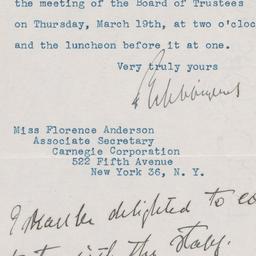 the meeting of the Board of Trustees
on Thursday, March 19th, at two o'cloc
and the luncheon before it at one.
Very truly yours
Miss Florence Anderson
Associate Secretary
Carnegie Corporation
522 Fifth Avenue
New York 36, N. Y.
I shall be delighted to co
with the staff.